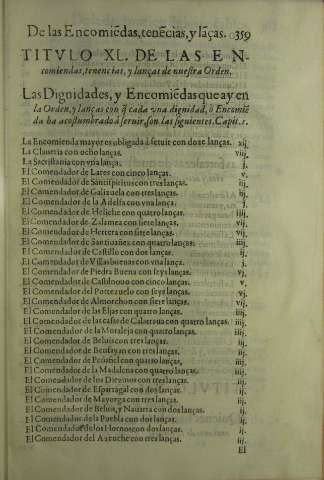 De las Encomiẽdas, tenẽcias, y lãças. 359
TITVLO XL. DE LAS EN-
comiendas, tenencias, y lanças de nuestra Orden.
Las Dignidades, y Encomiẽdas que ay en
la Orden, y lanças con q̃ cada vna dignidad, ò Encomiẽ
da ha acostumbrado à seruir, son las siguientes. Capit. 1.
La Encomienda mayor es obligada à seruir con doze lanças. xij.
La Clauería con ocho lanças. viij.
La Sacristania con vna lança. j.
El Comendador de Lares con cinco lanças. v.
El Comendador de Santispiritus con tres lanças. iij.
El Comendador de Galizuela con tres lanças. iij.
El Comendador de la Adelfa con vna lança. j.
El Comendador de Heliche con quatro lanças. iiij.
El Comendador de Zalamea con siete lanças. vij.
El Comendador de Herrera con siete lanças. vij.
El Comendador de Santiuañez con quatro lanças. iiij.
El Comendador de Castillo con dos lanças. ij.
El Comendador de Villasbuenas con vna lança. j.
El Comendador de Piedra Buena con seys lanças. vj.
El Comendador de Castilnouo con cinco lanças. v.
El Comendador del Portezuelo con seys lanças. vj.
El Comendador de Almorchon con siete lanças. vij.
El Comendador de las Eljas con quatro lanças. iiij.
El Comendador de las casas de Calatraua con quatro lanças. iiij.
El Comendador de la Moraleja con quatro lanças. iiij.
El Comendador de Beluis con tres lanças. iij.
El Comendador de Benfayan con tres lanças. iij.
El Comendador de Peñafiel con quatro lanças. iiij.
El Comendador de la Madalena con quatro lanças. iiij.
El Comendador de los Diezmos con tres lanças. iij.
El Comendador de Esparragal con dos lanças. ij.
El Comendador de Mayorga con tres lanças. iij.
El Comendador de Beluis, y Nauarra con dos lanças. ij.
El Comendador de la Puebla con dos lanças. ij.
El Comendador de los Hornos con dos lanças. ij.
El Comendador del Azeuche con tres lanças.
El